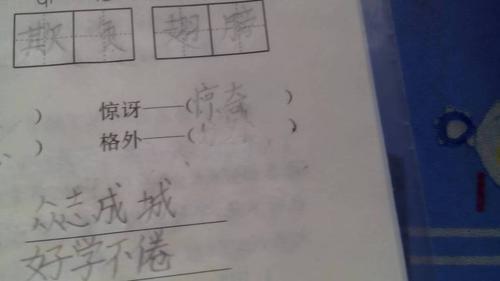 欺 负 翅 膀
) 惊讶——(惊奇 )
) 格外——( )
众志成城
好学不倦